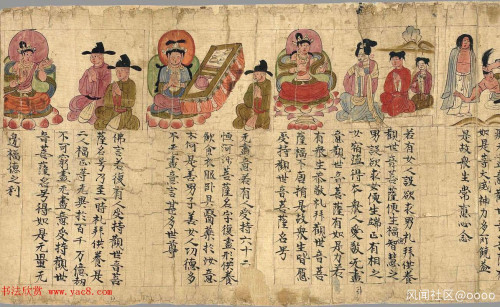 如是等大威神力多所饒益
是故衆生常應心念
若有女人設欲求男礼拜供養
觀世音菩薩便生福智慧之
男設欲求女便生端正有相之
女宿殖德本衆人愛敬无盡
意觀世音菩薩有如是力若
有衆生恭敬礼拜觀世音菩
薩福不唐捐是故衆生皆應
受持觀世音菩薩名号
无盡意若有人受持六十二
恒河沙菩薩名字復盡形供養
飲食衣服卧具醫藥於汝意
云何是善男子善女人功德多
不无盡意言甚多世尊
佛言若復有人受持觀世音菩
薩名号乃至一時礼拜供養是
二人福正等无異於百千万億劫
不可窮盡无盡意受持觀世
音菩薩名号得如是无量无
邊福德之利
书法欣赏
www.yac8.com
凤闻社区@oooo